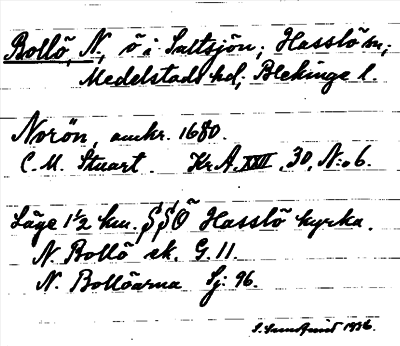 Bollö, N., ö i Saltsjön; Hasslö sn;
Medelstads hd; Blekinge l.
Norön, omkr. 1680.
C. M. Stuart. Kr.A. XXII, 30, N:o 6.
Läge 1 1/2 km. SSO Hasslö kyrka.
N. Bollö ek. G. 11.
N. Bollöarna Sj: 96.
1936